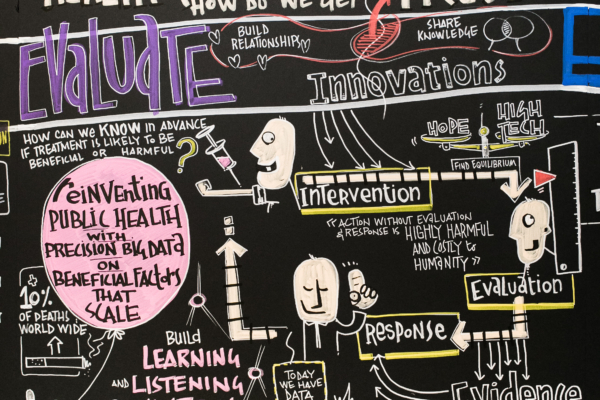 HOW DO WE GET
EVALUATE
BUILD
RELATIONSHIPS
SHARE
KNOWLEDGE
INNOVATIONS
HOW CAN WE KNOW IN ADVANCE
IF TREATMENT IS LIKELY TO BE
BENEFICIAL OR HARMFUL
?
HOPE
HIGH
TECH
FIND EQUILIBRIUM
INTERVENTION
"ACTION WITHOUT EVALUATION
& RESPONSE IS HIGHLY HARMFUL
AND COSTLY to
HUMANITY"
REINVENTING
PUBLIC HEALTH
WITH
PRECISION BIG DATA
ON
BENEFICIAL FACTORS
THAT
SCALE
EVALUATION
10%
OF DEATHS
WORLD WIDE
RESPONSE
BUILD
LEARNING
AND LISTENING
TODAY
WE HAVE
DATA
EVIDENCE